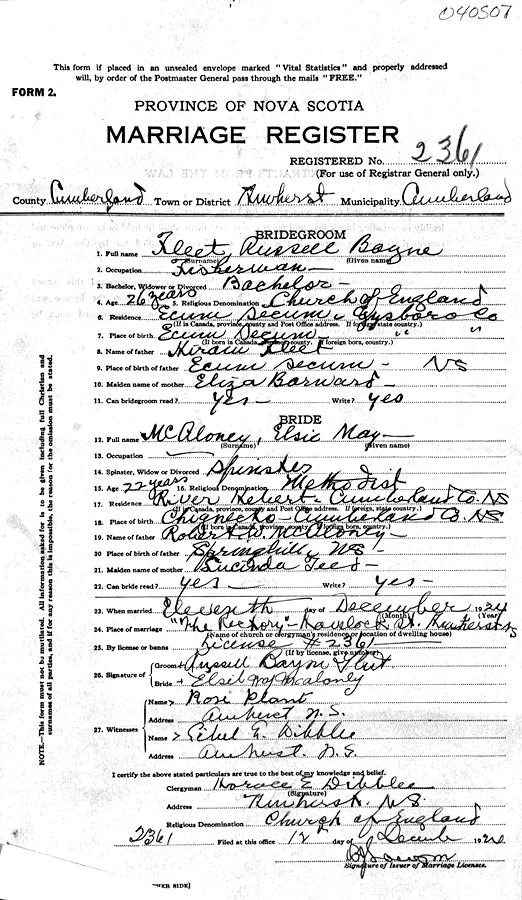 040507
This form if placed in an unsealed envelope marked "Vital Statistics" and properly addressed
will, by order of the Postmaster General pass through the mails "FREE."
FORM 2.
PROVINCE OF NOVA SCOTIA
MARRIAGE REGISTER
REGISTERED No. 2361
(For use of Registrar General only.)
County Cumberland Town or District Amherst Municipality Cumberland
BRIDEGROOM
1. Full name Fleet, Russell Bayne
(Surname) (Given name)
2. Occupation Fisherman
3. Bachelor, Widower or Divorced Bachelor
4. Age 26 years 5. Religious Denomination Church of England
6. Residence Ecum Secum, Gysboro Co
(If in Canada, province, county and Post Office address. If foreign, state country.)
7. Place of birth Ecum Secum " "
(If born in Canada, province, county. If foreign born, country.)
8. Name of father Hiram Fleet
9. Place of birth of father Ecum Secum - NS
10. Maiden name of mother Eliza Barnard
11. Can bridegroom read? yes Write? yes
BRIDE
12. Full name McAloney, Elsie May
(Surname) (Given name)
13. Occupation
14. Spinster, Widow or Divorced Spinster
15. Age 22 years 16. Religious Denomination Methodist
17. Residence River Hebert - Cumberland Co. NS
18. Place of birth Chignecto - Cumberland Co. NS
19. Name of father Robert W. McAloney
20. Place of birth of father Springhill, NS
21. Maiden name of mother Lucinda
22. Can bride read? yes Write? yes
23. When married Eleventh day of December 1924
(Month) (Year)
24. Place of marriage "The Rectory" - Havelock St. Amherst NS
(Name of church or clergyman's residence or location of dwelling house)
25. By license or banns License # 2361
(If by license, give number)
26. Signature of Groom Russell Bayn Fleet
Bride Elsie May McAloney
27. Witnesses Name Rose Plant
Address Amherst N.S.
Name Ethel E. Dibblee
Address Amherst. N.S.
I certify the above stated particulars are true to the best of my knowledge and belief.
Clergyman Horace E Dibblee
(Signature)
Address Amherst. N.S.
Religious Denomination Church of England
2361 Filed at this office 12 of Decemb 1924
Signature of Issuer of Marriage Licenses.
NOTE—This form must not be mutilated. All information asked for is to be given including full Christian and
surnames of all parties, and if for any reason this is impossible, the reason for the omission must be stated.